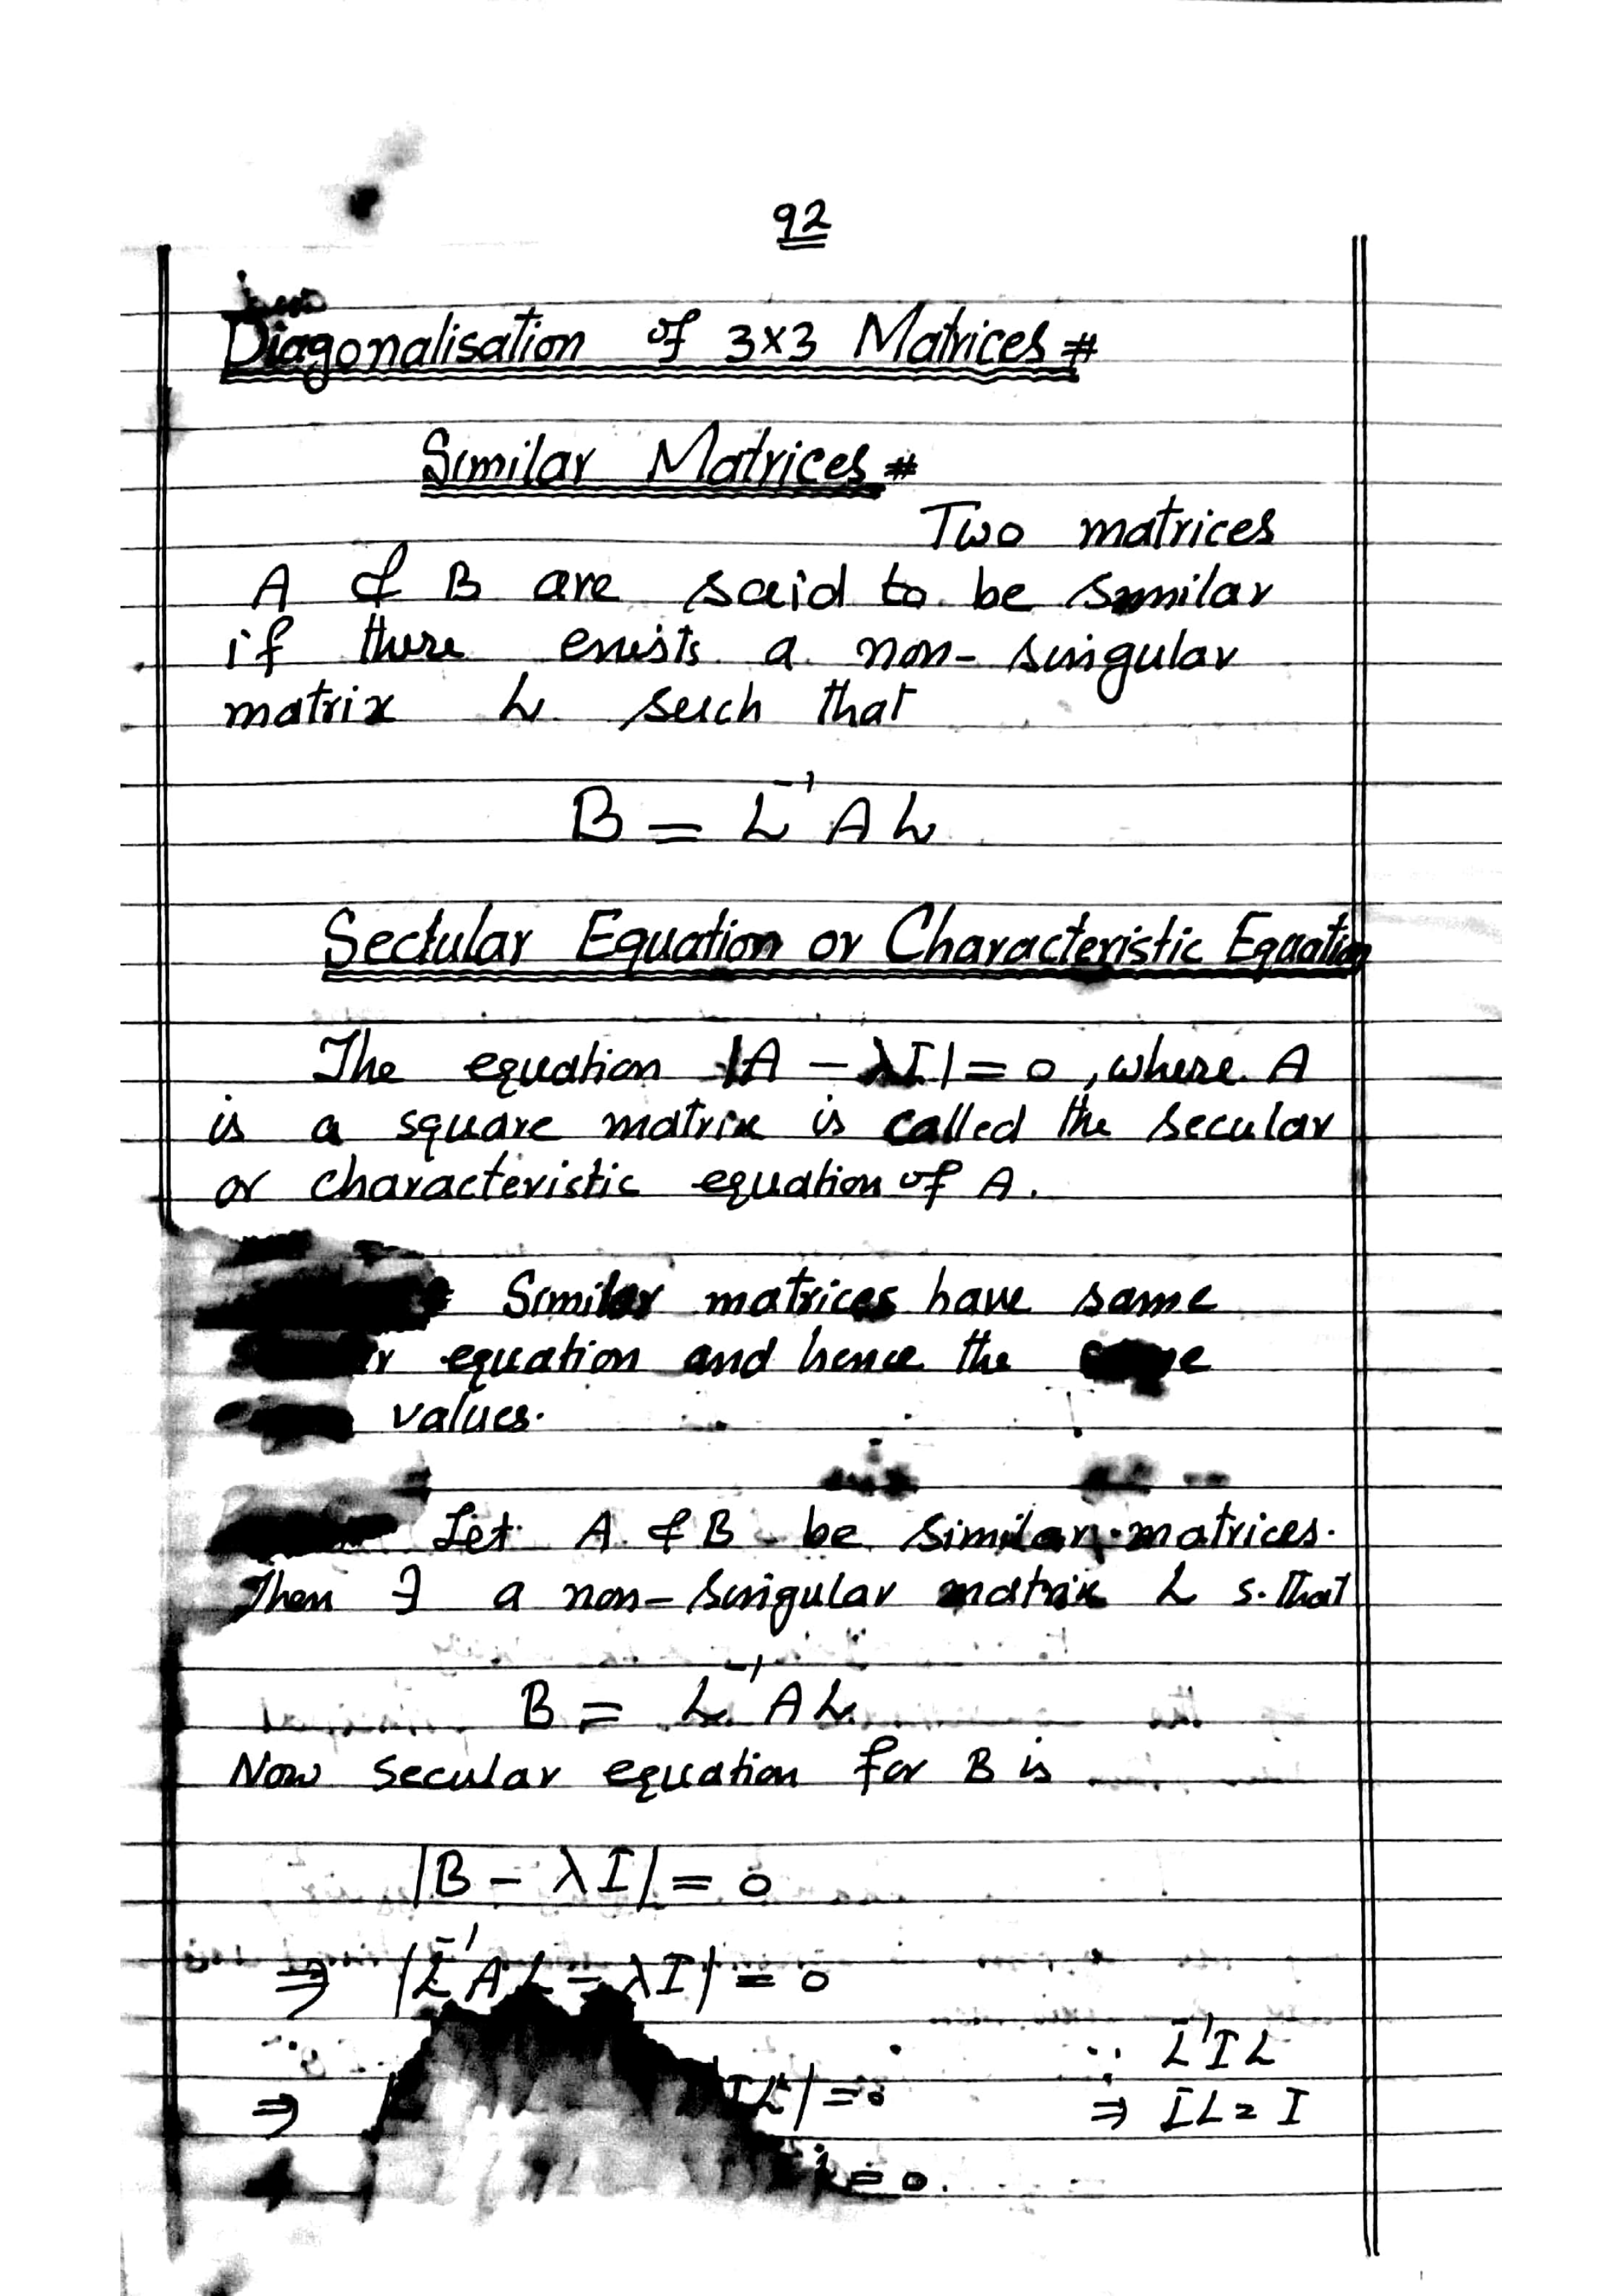 92
Diagonalisation of 3×3 Matrices #
Similar Matrices #
Two matrices
A & B are said to be similar
if there exists a non-singular
matrix L such that
B = L⁻¹ A L
Sectular Equation or Characteristic Equation
The equation |A - λI| = 0, where A
is a square matrix is called the secular
or characteristic equation of A.
Similar matrices have same
equation and hence the
values.
Let A & B be similar matrices.
Then ∃ a non-singular matrix L s. that
B = L⁻¹ A L
Now secular equation for B is
|B - λI| = 0
⇒ |L⁻¹ A L - λI| = 0
∵ L⁻¹ I L
⇒ IL| = 0 ⇒ IL = I
= 0.